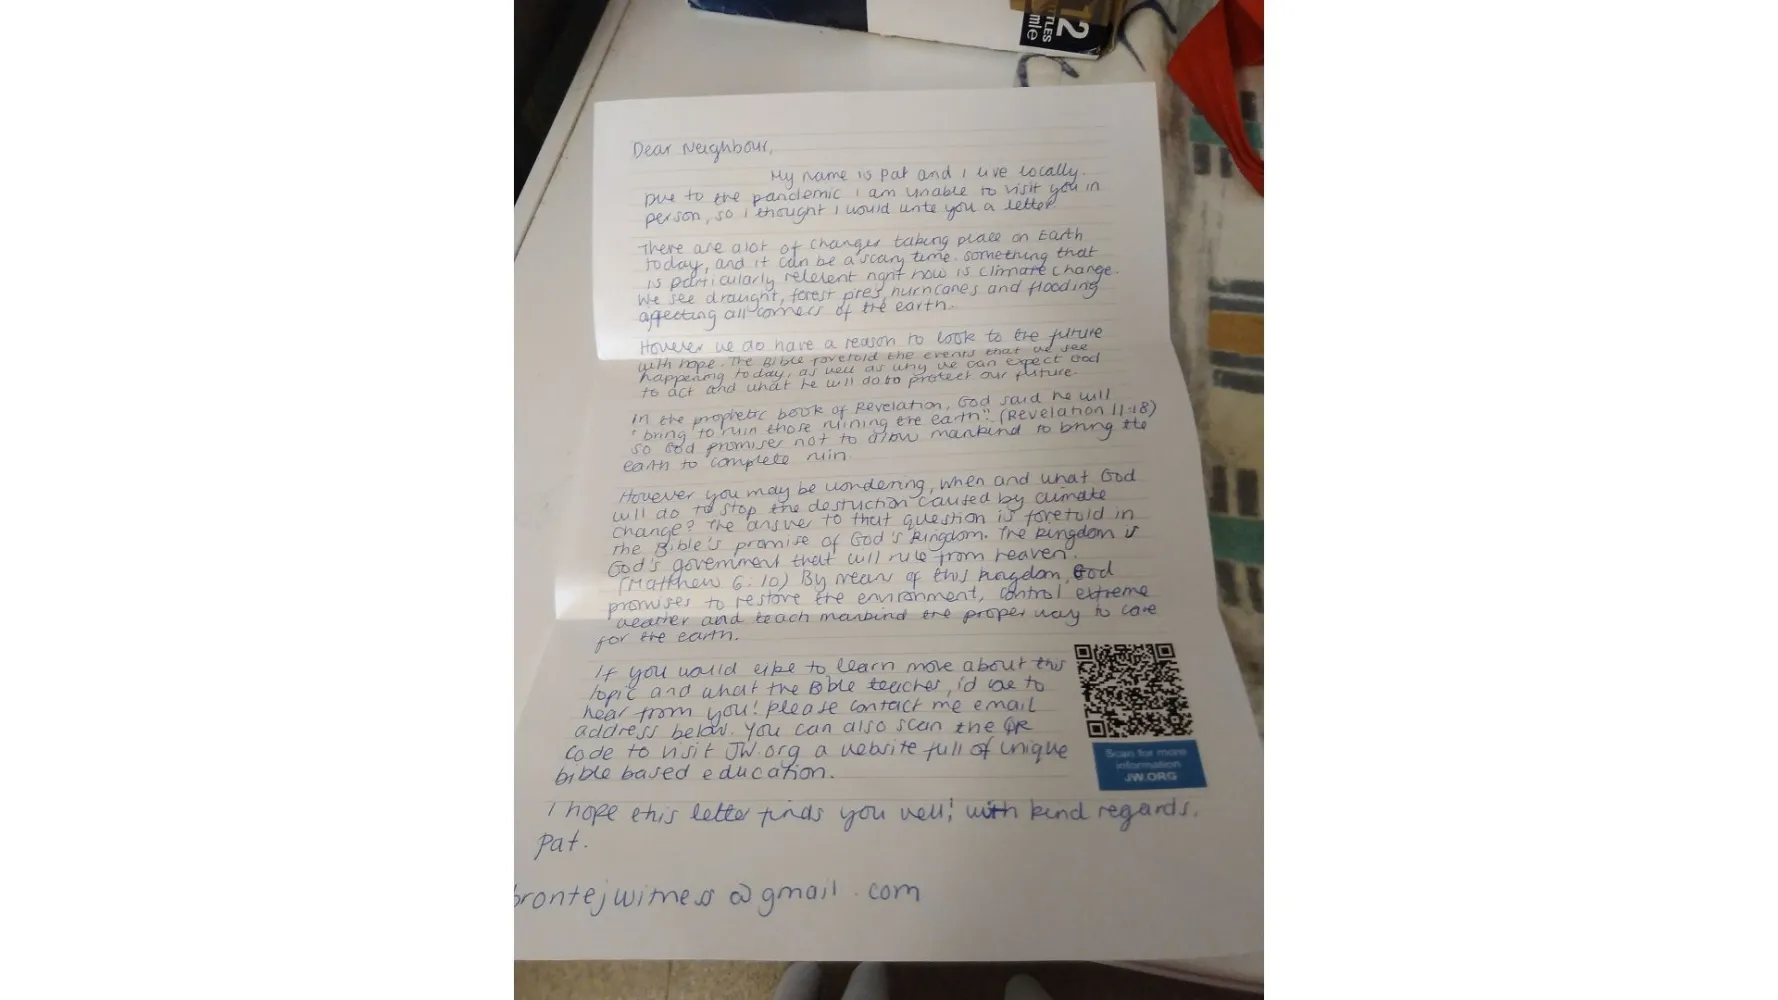 12
TLES
mle
Dear Neighbour,
My name is Pat and I live locally.
Due to the pandemic I am unable to visit you in
person, so I thought I would write you a letter
There are alot of changes taking place on Earth
today, and it can be a scary time. something that
is particularly relevent right now is climate change.
We see draught, forest fires, hurricanes and flooding
affecting all corners of the earth.
However we do have a reason to look to the future
with hope. The Bible foretold the events that we see
happening today, as well as why we can expect God
to act and what he will do to protect our future.
In the prophetic book of Revelation, God said he will
"bring to ruin those ruining the earth". (Revelation 11:18)
so God promises not to allow mankind to bring the
earth to complete ruin.
However you may be wondering, when and what God
will do to stop the destuction caused by climate
change? The answer to that question is foretold in
the Bible's promise of God's kingdom. The kingdom is
God's government that will rule from heaven.
(Matthew 6:10) By mean of this kingdom, God
promises to restore the environment, control extreme
weather and teach mankind the proper way to care
for the earth.
If you would like to learn more about this
topic and what the Bible teaches, i'd love to
hear from you! Please contact me email
address below. You can also scan the QR
code to visit JW.org a website full of unique
bible based education.
Scan for more
information
JW.ORG
I hope this letter finds you well! with kind regards.
Pat.
brontejwitness@gmail.com